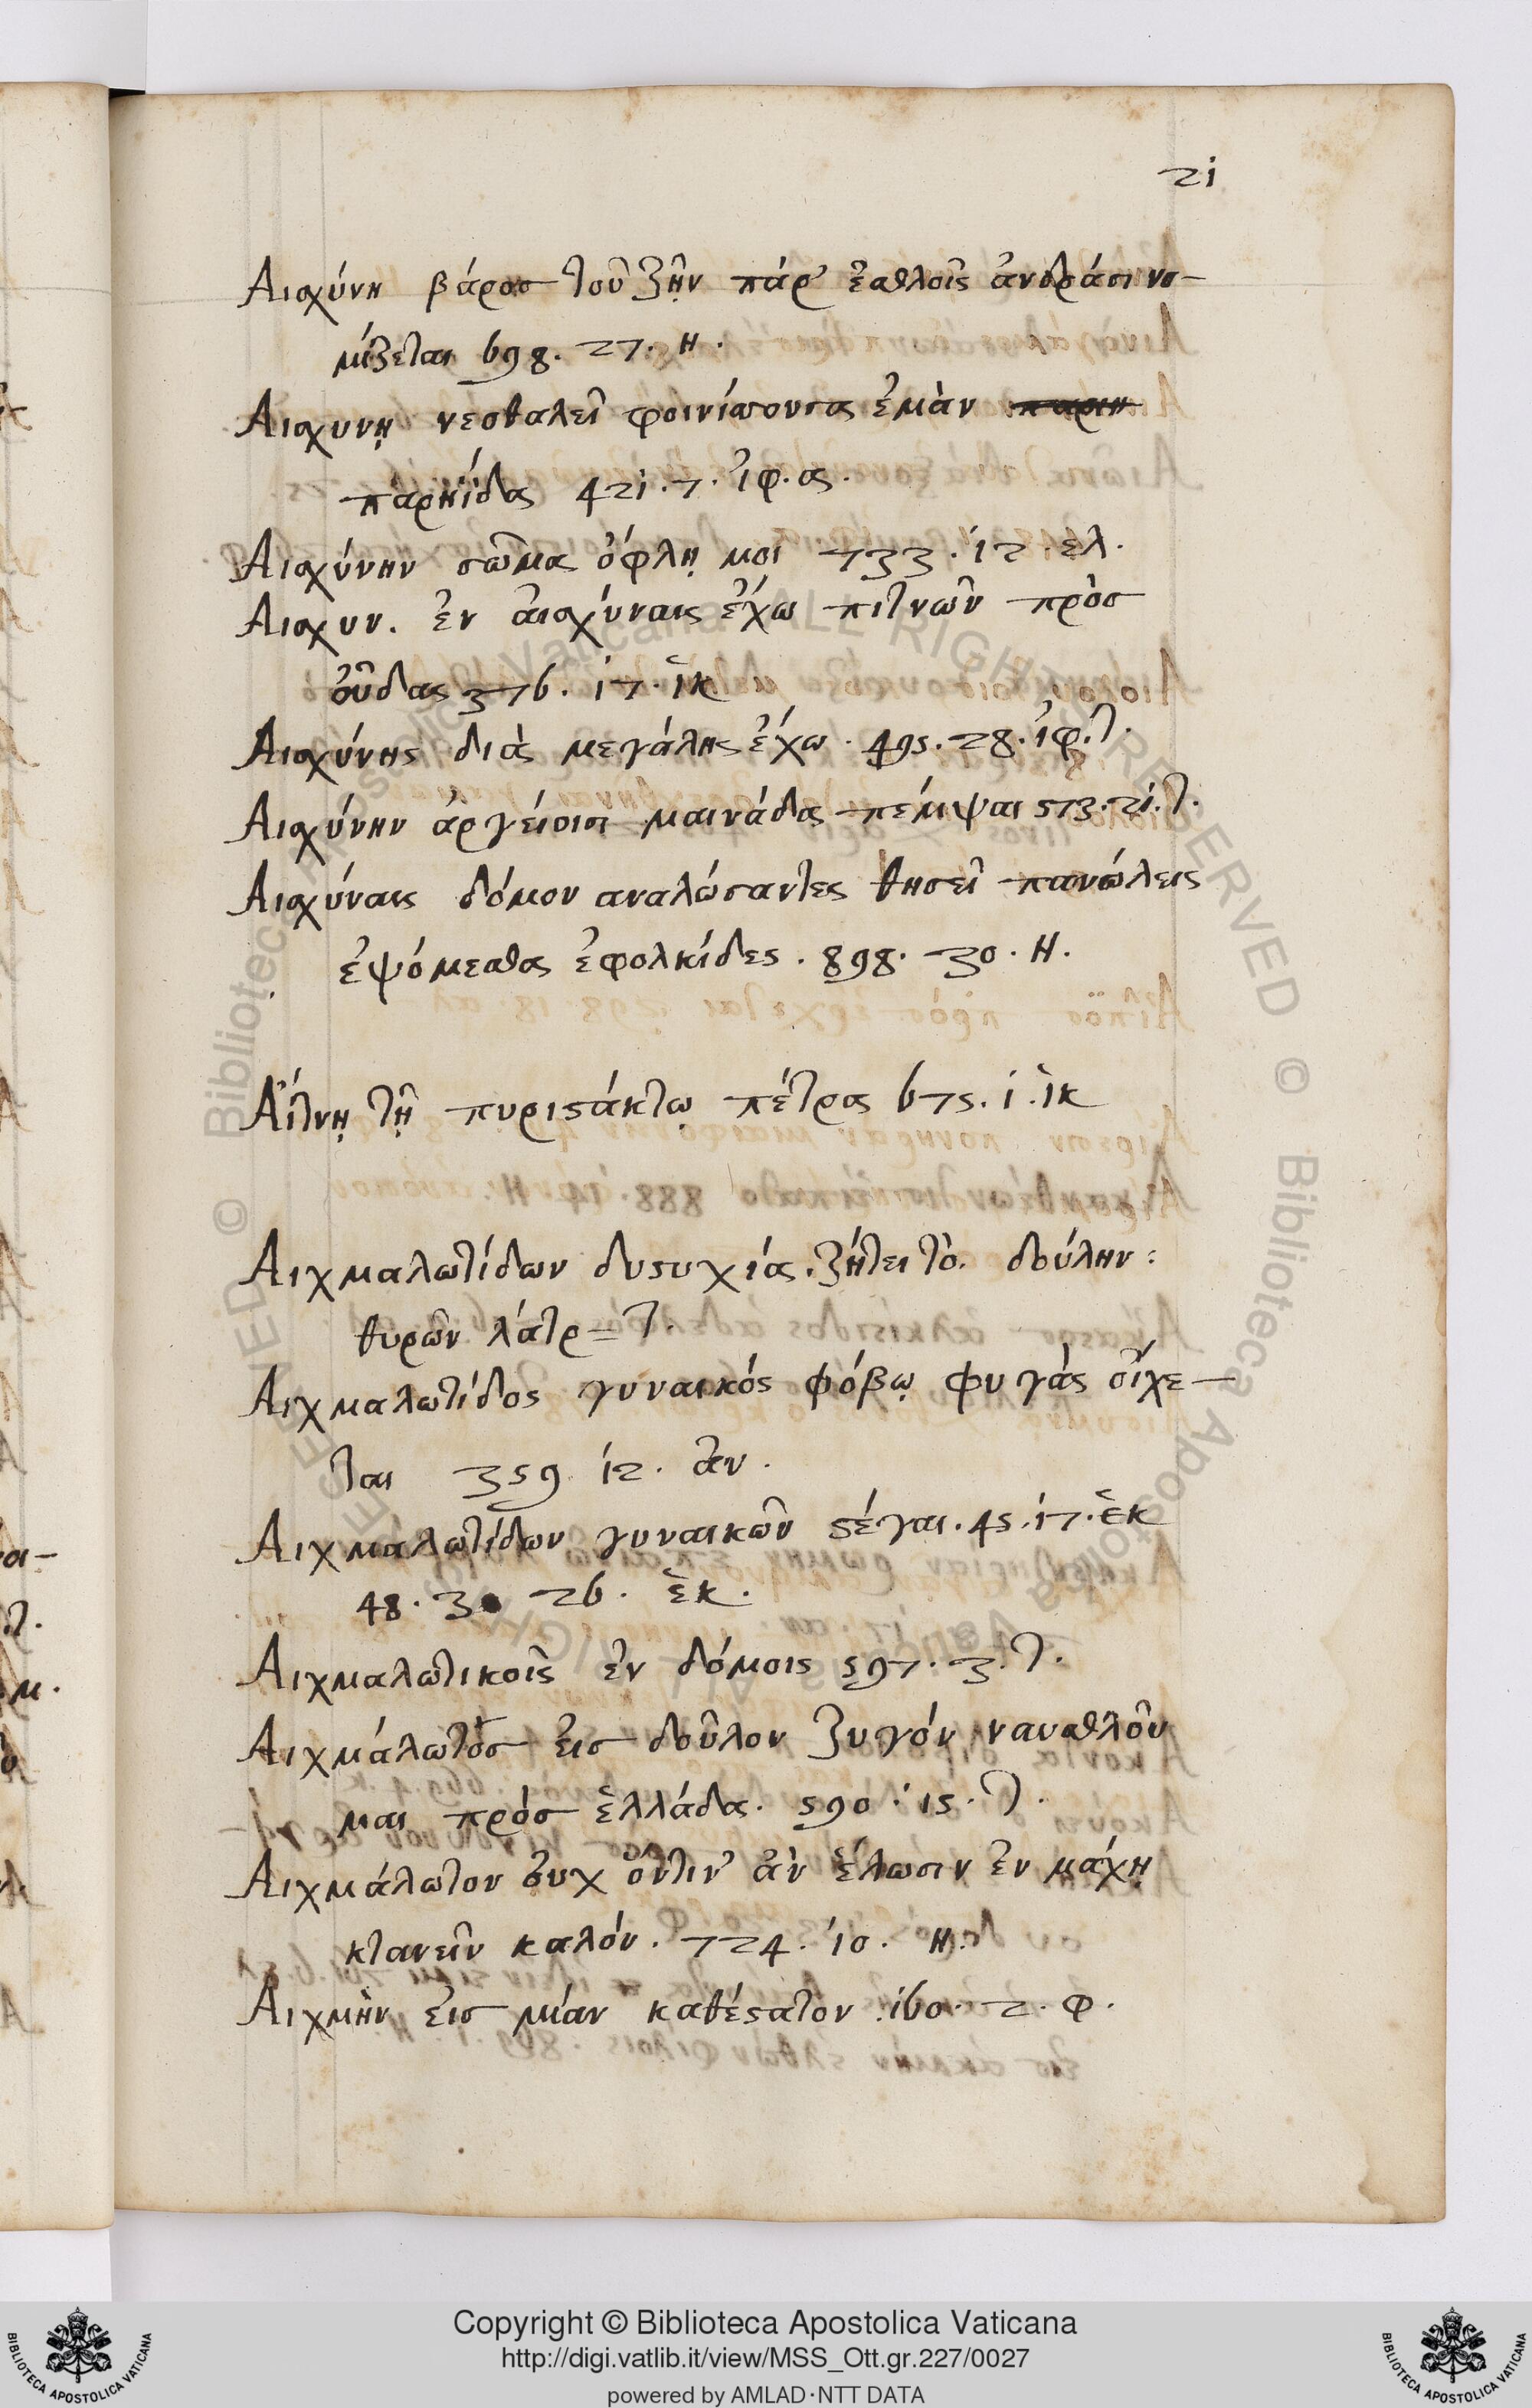 21
Αισχύνη βάρος τοῦ ζῆν πάρ' ἐσθλοῖς ἀνδράσι νο-
μίζεται 698. 27. Η.
Αισχυνῃ νεοθαλεῖ φοινίσσουσα ἐμὰν παριη
παρηΐδα 421. 7. ἰφ. α.
Αισχύνην σῶμα ὀφλῃ μοι 733. 12. ελ.
Αισχυν. ἐν ἀισχύναις ἔχω πιτνῶν πρὸς
οὖδας 376. 17. ἱκ
Αισχύνης διὰ μεγάλης ἔχω. 495. 28. ἰφ. τ.
Αισχύνην ἀργείοισι μαινάδα πέμψαι 573. 21. τ.
Αισχύναις δόμον αναλώσαντες θησεῖ πανώλεις
ἐψόμεσθα ἐφολκίδες. 898. 30. Η.
Αἴτνῃ τῇ πυριςάκτῳ πέτρα 675. 1. ἱκ
Αιχμαλωτίδων δυςυχία. ζήτει τὸ. δούλην:
θυρῶν λάτρ= τ.
Αιχμαλωτίδος γυναικός φόβῳ φυγὰς οἴχε-
ται 359 12. ἀν.
Αιχμάλωτίδων γυναικῶν ςέγαι. 45. 17. ἑκ
48. 30 26. ἑκ.
Αιχμαλωτικοῖς ἐν δόμοις 597. 3. τ.
Αιχμάλωτὸς ἐις δοῦλον ζυγόν ναυσθλοῦ
μαι πρὸς ἑλλάδα. 590. 15. τ.
Αιχμάλωτον ὀυχ ὅντιν' ἂν ἕλωσιν ἐν μάχῃ
κτανεῖν καλόν. 724. 10. Η.
Αιχμὴν ἐις μίαν καθέςατον. 160. 2. Φ.
Copyright © Biblioteca Apostolica Vaticana
http://digi.vatlib.it/view/MSS_Ott.gr.227/0027
powered by AMLAD·NTT DATA